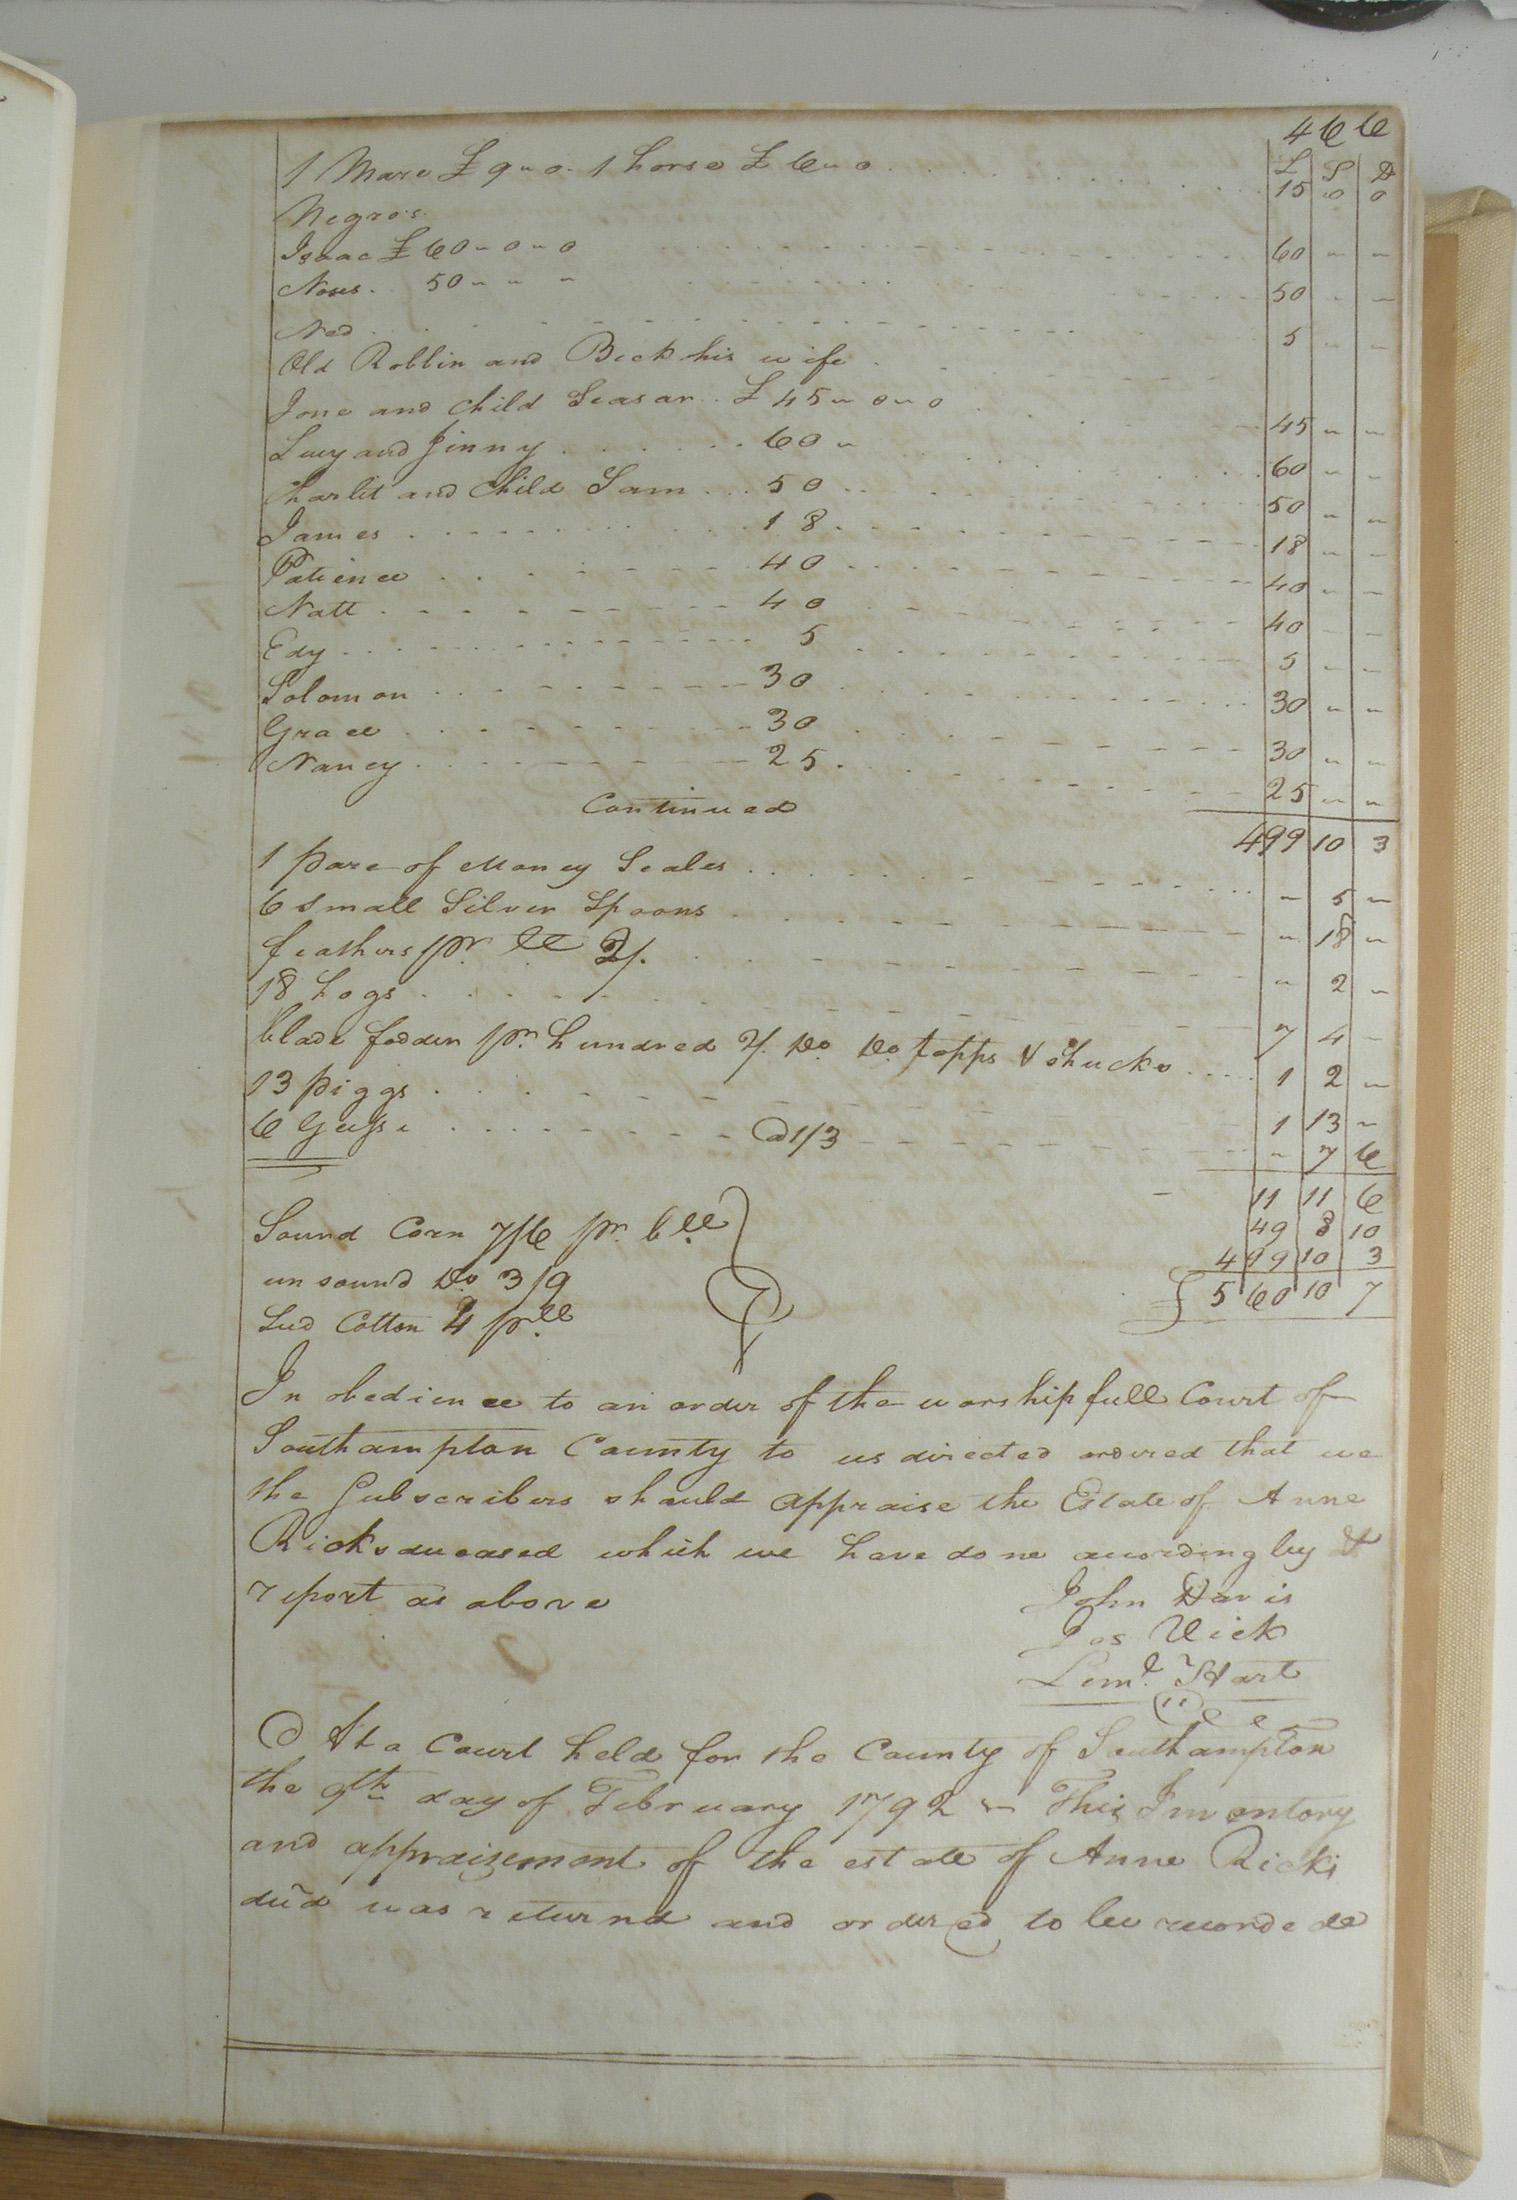 466
£ S D
1 Mare £ 9 " 0. 1 horse £ 6 " 0 . . . 15 " 0 0
Negros.
Isaac £ 60 " 0 " 0 60 " "
Moses. 50 " " " 50 " "
Ned 5 " "
Old Robbin and Beck his wife
Jone and child Seasar. £ 45 " 0 " 0 45 " "
Lucy and Jinny 60 " 60 " "
Charlit and Child Sam 50 50 " "
James 18 18 " "
Patience 40 40 " "
Natt 40 40 " "
Edy 5 5 " "
Solomon 30 30 " "
Grace 30 30 " "
Nancy 25 25 " "
Continued
499 10 3
1 pare of Money Scales " 5 "
6 Small Silver Spoons " 18 "
feathers pr. lb 2/. " 2 "
18 hogs 7 4 "
blade fodder pr. hundred 2/. Do. Do. topps & shucks 1 2 "
13 piggs 1 13 "
6 Geese @ 1/3 " 7 6
11 11 6
Sound Corn 7/6 pr. bll 49 8 10
499 10 3
un sound Do. 3/9 £ 560 10 7
Seed Cotton
In obedience to an order of the worshipfull Court of
Southampton County to us directed ordered that we
the Subscribers should appraise the Estate of Anne
Ricks deceased which we have done accordingley &
report as above
John Davis
Jos Vick
Leml. Hart
At a Court held for the County of Southampton
the 9th day of February 1792 " This Inventory
and appraizement of the estate of Anne Ricks
decd was returnd and ordered to be recorded